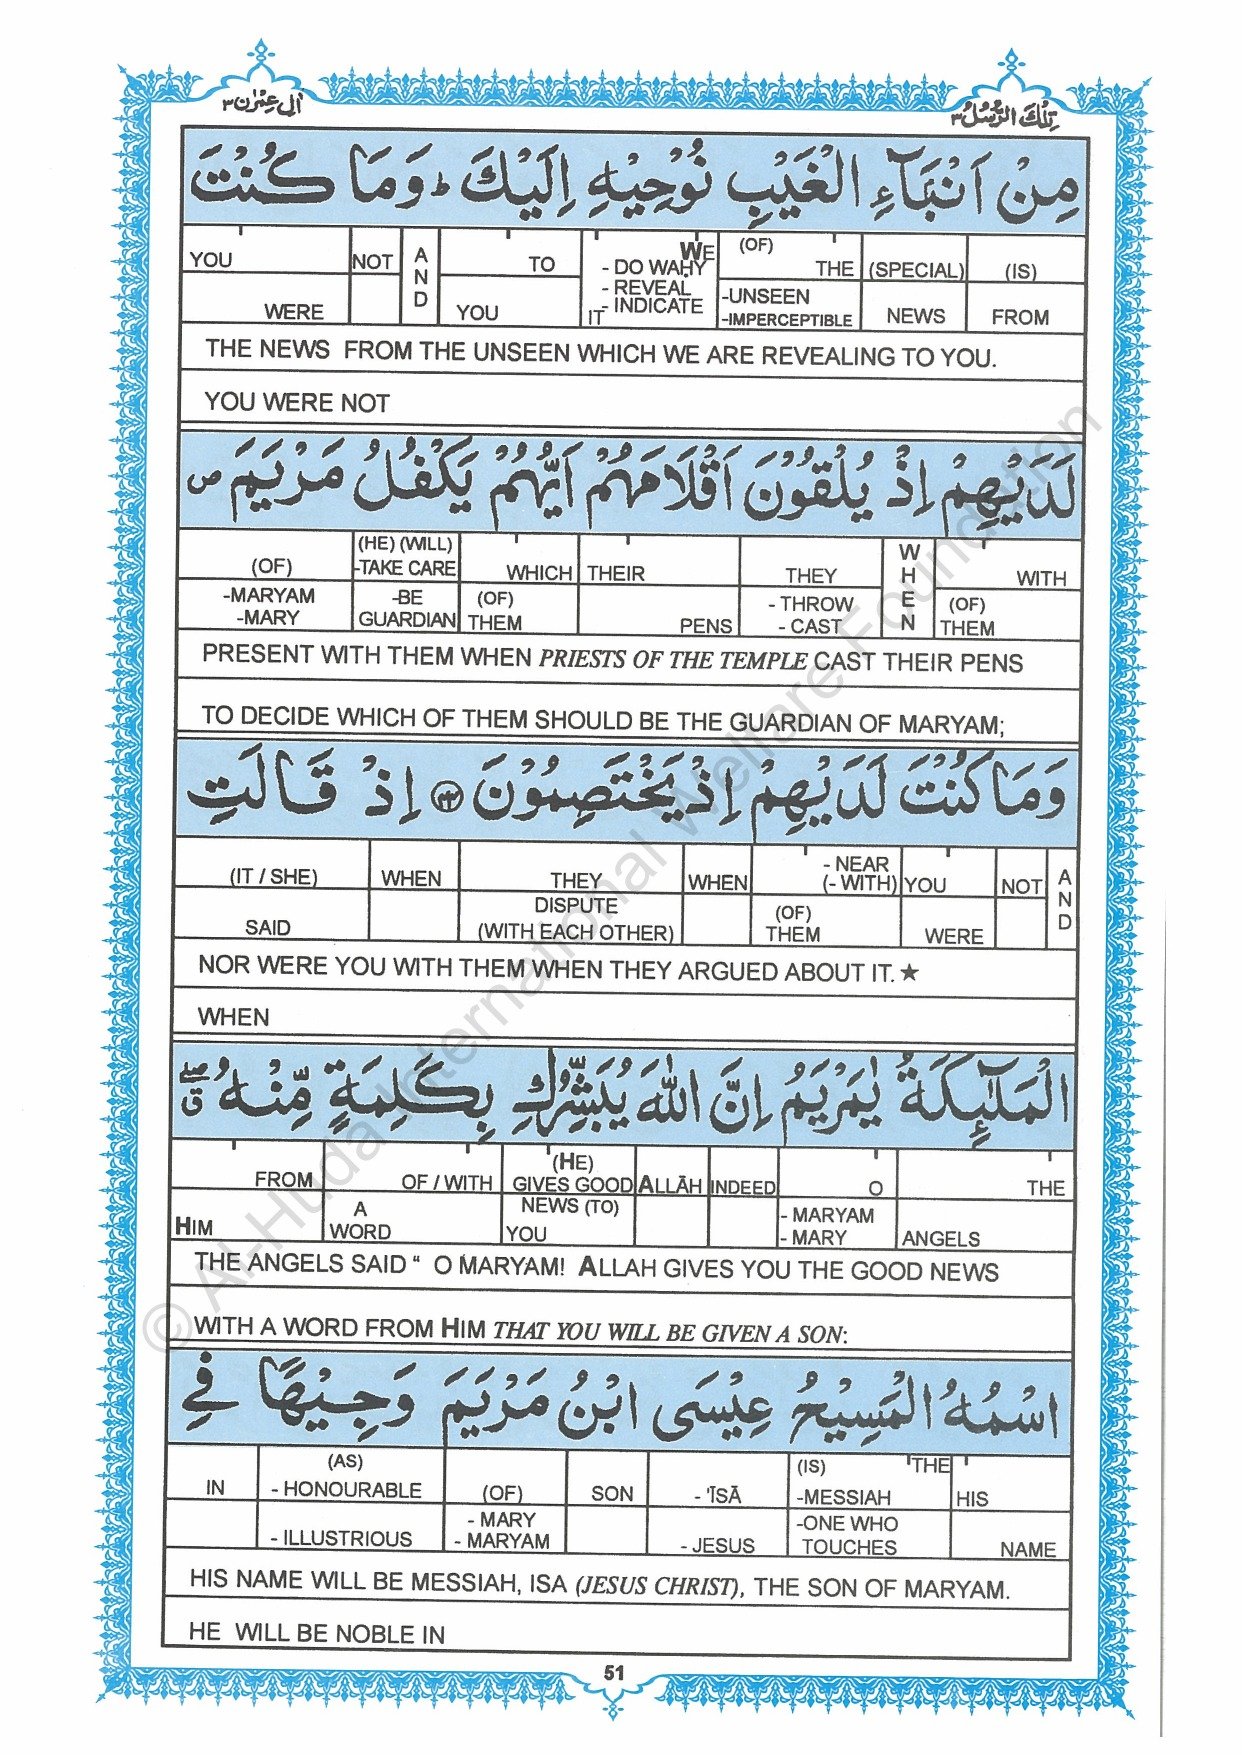 اٰلِ عِمْرٰن ٣
تِلْكَ الرُّسُلُ ٣
مِنْ اَنْۢبَآءِ الْغَيْبِ نُوْحِيْهِ اِلَيْكَ ؕ وَمَا كُنْتَ
YOU NOT AND TO WE - DO WAḤY - REVEAL - INDICATE (OF) THE (SPECIAL) (IS)
WERE YOU IT -UNSEEN -IMPERCEPTIBLE NEWS FROM
THE NEWS FROM THE UNSEEN WHICH WE ARE REVEALING TO YOU.
YOU WERE NOT
لَدَيْهِمْ اِذْ يُلْقُوْنَ اَقْلَامَهُمْ اَيُّهُمْ يَكْفُلُ مَرْيَمَ ۪
(OF) (HE) (WILL) -TAKE CARE WHICH THEIR THEY WHEN WITH
-MARYAM -MARY -BE GUARDIAN (OF) THEM PENS - THROW - CAST (OF) THEM
PRESENT WITH THEM WHEN PRIESTS OF THE TEMPLE CAST THEIR PENS
TO DECIDE WHICH OF THEM SHOULD BE THE GUARDIAN OF MARYAM;
وَمَا كُنْتَ لَدَيْهِمْ اِذْ يَخْتَصِمُوْنَ ﴿٤٤﴾ اِذْ قَالَتِ
(IT / SHE) WHEN THEY WHEN - NEAR (- WITH) YOU NOT AND
SAID DISPUTE (WITH EACH OTHER) (OF) THEM WERE
NOR WERE YOU WITH THEM WHEN THEY ARGUED ABOUT IT. ★
WHEN
الْمَلٰٓئِكَةُ يٰمَرْيَمُ اِنَّ اللّٰهَ يُبَشِّرُكِ بِكَلِمَةٍ مِّنْهُ ۖۗ
FROM OF / WITH (HE) GIVES GOOD ALLĀH INDEED O THE
HIM A WORD NEWS (TO) YOU - MARYAM - MARY ANGELS
THE ANGELS SAID “ O MARYAM! ALLAH GIVES YOU THE GOOD NEWS
WITH A WORD FROM HIM THAT YOU WILL BE GIVEN A SON:
اسْمُهُ الْمَسِيْحُ عِيْسَى ابْنُ مَرْيَمَ وَجِيْهًا فِي
IN (AS) - HONOURABLE (OF) SON - 'ĪSĀ (IS) THE -MESSIAH HIS
- ILLUSTRIOUS - MARY - MARYAM - JESUS -ONE WHO TOUCHES NAME
HIS NAME WILL BE MESSIAH, ISA (JESUS CHRIST), THE SON OF MARYAM.
HE WILL BE NOBLE IN
51
© Al-Huda International Welfare Foundation